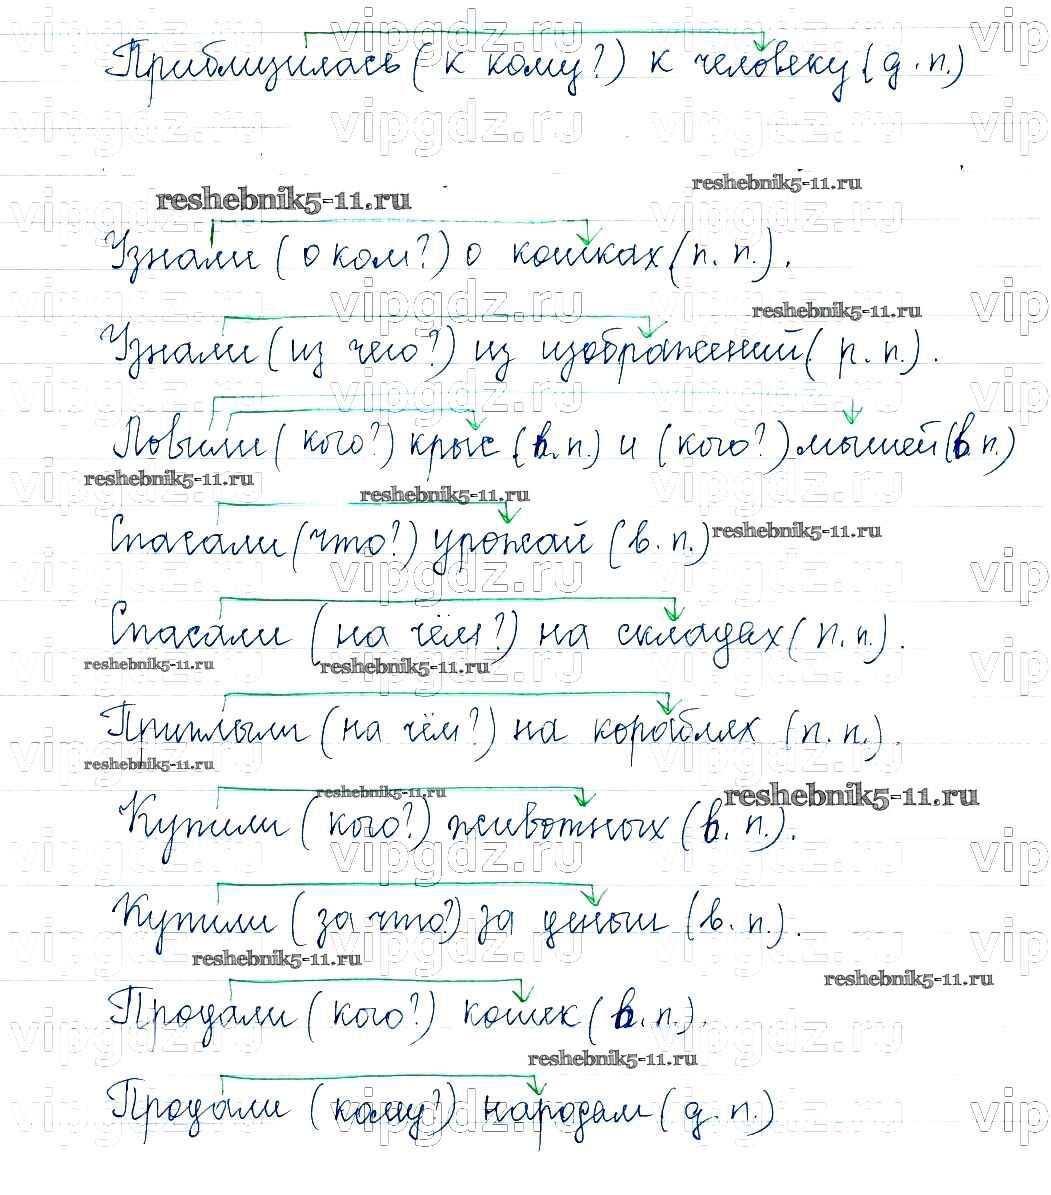 Приблизилась (к кому?) к человеку (д.п.)
reshebnik5-11.ru
reshebnik5-11.ru
Узнали (о ком?) о кошках (п.п.).
reshebnik5-11.ru
Узнали (из чего?) из изображений (р.п.).
Ловили (кого?) крыс (в.п.) и (кого?) мышей (в.п.)
reshebnik5-11.ru
reshebnik5-11.ru
Спасали (что?) урожай (в.п.)
reshebnik5-11.ru
Спасали (на чём?) на складах (п.п.).
reshebnik5-11.ru
reshebnik5-11.ru
Приплыли (на чём?) на кораблях (п.п.).
reshebnik5-11.ru
reshebnik5-11.ru
reshebnik5-11.ru
Купили (кого?) животных (в.п.).
Купили (за что?) за деньги (в.п.).
reshebnik5-11.ru
reshebnik5-11.ru
Продали (кого?) кошек (в.п.).
reshebnik5-11.ru
Продали (кому?) народам (д.п.)
vipgdz.ru